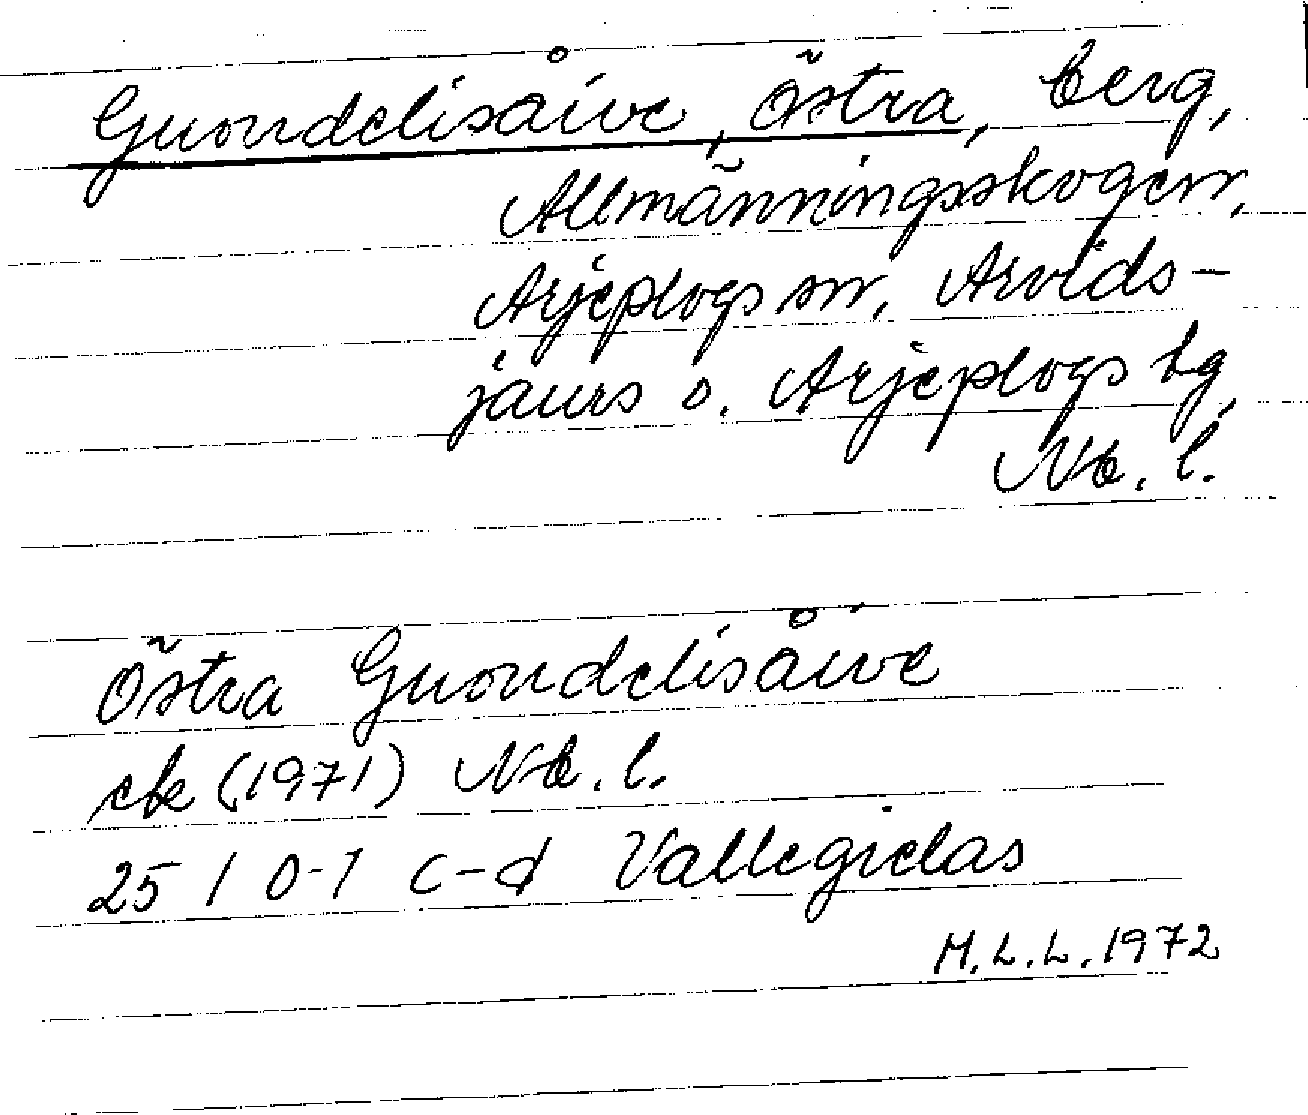 Guoudelisåive, Östra, berg,
Allmänningsskogen,
Arjeplogs sn, Arvids-
jaurs o. Arjeplogs tg
Nb. l.
Östra Guoudelisåive
ek (1971) Nb. l.
25 I 0-1 c-d Vallegielas
M.L.L. 1972